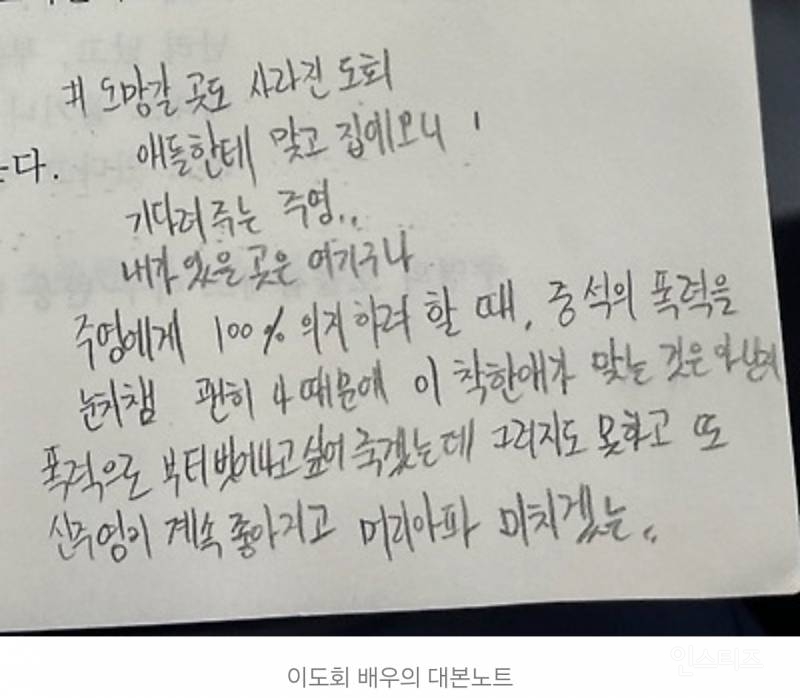 는다.
# 도망갈 곳도 사라진 도회
애들한테 맞고 집에오니
기다려 주는 주영..
내가 있을 곳은 여기구나
주영에게 100% 의지하려 할 때, 중석의 폭력을
눈치챔 괜히 나 때문에 이 착한애가 맞는 것은 아닌지
폭력으로 부터 벗어나고 싶어 죽겠는데 그러지도 못하고 또
신주영이 계속 좋아지고 머리아파 미치겠는..
이도회 배우의 대본노트
인스티즈